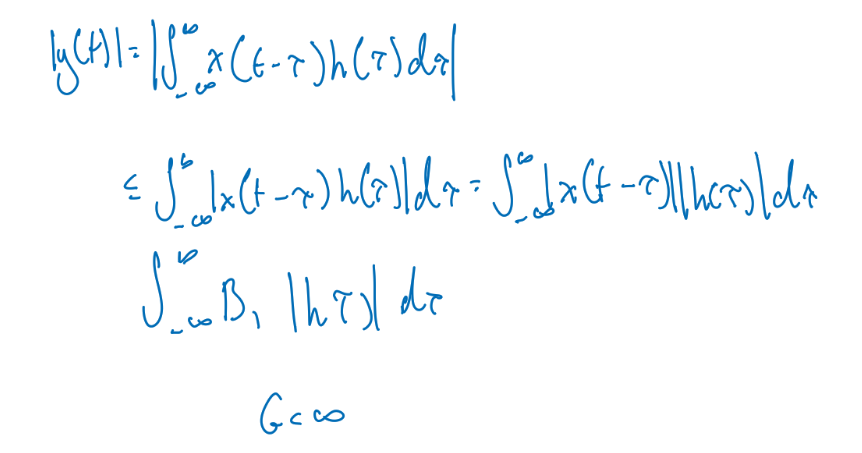 |y(t)| = |∫_{-∞}^{∞} x(t-τ)h(τ)dτ|
≤ ∫_{-∞}^{∞} |x(t-τ)h(τ)|dτ = ∫_{-∞}^{∞} |x(t-τ)||h(τ)|dτ
∫_{-∞}^{∞} B₁ |hτ)| dτ
G<∞